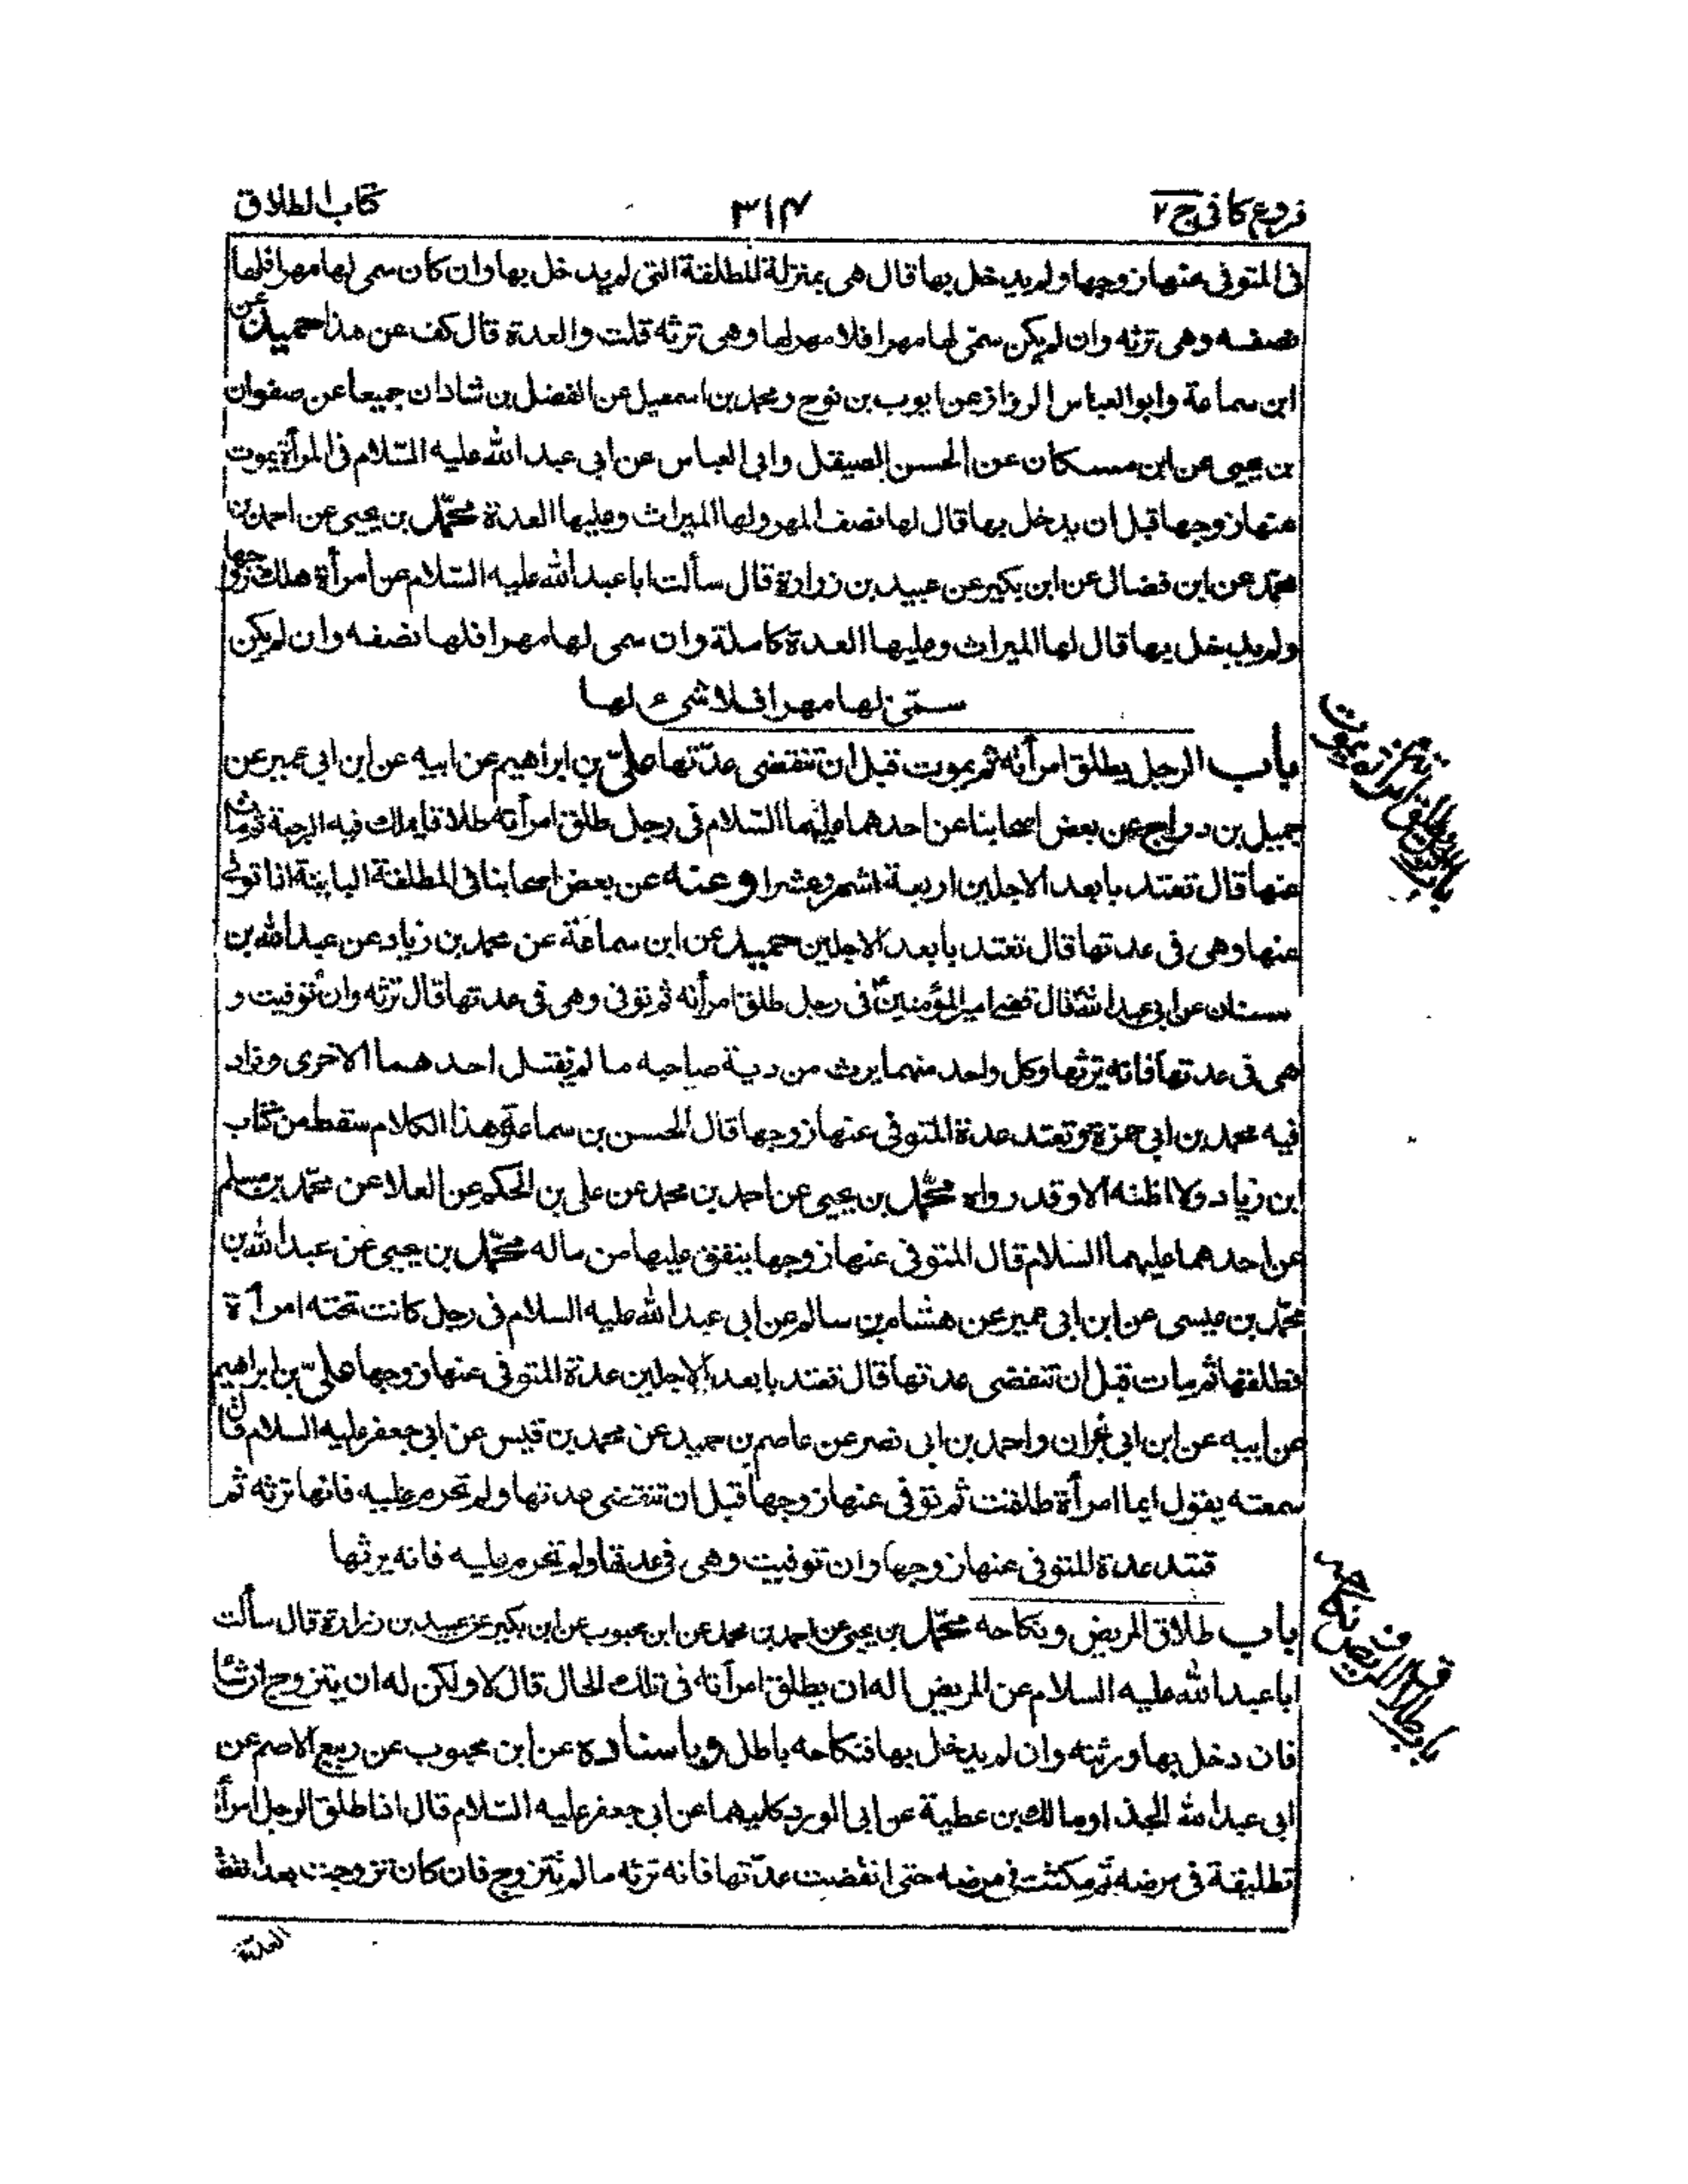 فروع كافى ج ٢
٣١٤
كتاب الطلاق
فى المتوفى عنها زوجها ولم يدخل بها قال هى بمنزلة المطلقة التى لم يدخل بها وان كان سمى لها مهرا فلها
نصفه وهى ترثه وان لم يكن سمّى لها مهرا فلا مهر لها وهى ترثه قلت والعدة قال كف عن هذا حميد عن
ابن سماعة وابو العباس الرزاز عن ايوب بن نوح ومحمد بن اسمعيل عن الفضل بن شاذان جميعا عن صفوان
بن يحيى عن ابن مسكان عن الحسن الصيقل وابى العباس عن ابى عبد الله عليه السّلام فى المرأة يموت
عنها زوجها قبل ان يدخل بها قال لها نصف المهر ولها الميراث وعليها العدة محمّد بن يحيى عن احمد بن
محمّد عن ابن فضال عن ابن بكير عن عبيد بن زرارة قال سألت ابا عبد الله عليه السّلام عن امرأة هلك زوجها
ولم يدخل بها قال لها الميراث وعليها العدة كاملة وان سمى لها مهرا فلها نصفه وان لم يكن
سمّى لها مهرا فلا شىء لها
باب الرجل يطلق امرأته ثم يموت قبل ان تنقضى عدّتها علىّ بن ابراهيم عن ابيه عن ابن ابى عمير عن
جميل بن دراج عن بعض اصحابنا عن احدهما عليهما السّلام فى رجل طلق امرأته طلاقا يملك فيه الرجعة ثم مات
عنها قال تعتد بابعد الاجلين اربعة اشهر وعشرا وعنه عن بعض اصحابنا فى المطلقة البائنة اذا توفى
عنها وهى فى عدتها قال تعتد بابعد الاجلين حميد عن ابن سماعة عن محمد بن زياد عن عبد الله بن
سنان عن ابى عبد اللهؑ قال قضى امير المؤمنينؑ فى رجل طلق امرأته ثم توفى وهى فى عدتها قال ترثه وان توفيت و
هى فى عدتها فانه يرثها وكل واحد منهما يرث من دية صاحبه ما لم يقتل احدهما الاخرى وزاد
فيه محمد بن ابى حمزة وتعتد عدة المتوفى عنها زوجها قال الحسن بن سماعة وهذا الكلام سقط من كتاب
ابن زياد ولا اظنه الا وقد رواه محمّد بن يحيى عن احمد بن محمد عن على بن الحكم عن العلا عن محمّد بن مسلم
عن احدهما عليهما السلام قال المتوفى عنها زوجها ينفق عليها من ماله محمّد بن يحيى عن عبد الله بن
محمّد بن عيسى عن ابن ابى عمير عن هشام بن سالم عن ابى عبد الله عليه السلام فى رجل كانت تحته امرأة
فطلقها ثم مات قبل ان تنقضى عدتها قال تعتد بابعد الاجلين عدة المتوفى عنها زوجها علىّ بن ابراهيم
عن ابيه عن ابن ابى نجران واحمد بن ابى نصر عن عاصم بن حميد عن محمد بن قيس عن ابى جعفر عليه السلام قال
سمعته يقول ايما امرأة طلقت ثم توفى عنها زوجها قبل ان تنقضى عدتها ولم تحرم عليه فانها ترثه ثم
تعتد عدة المتوفى عنها زوجها وان توفيت وهى فى عدتها ولم تحرم عليه فانه يرثها
باب طلاق المريض ونكاحه محمّد بن يحيى عن احمد بن محمد عن ابن محبوب عن ابن بكير عن عبيد بن زرارة قال سألت
ابا عبد الله عليه السلام عن المريض اله ان يطلق امرأته فى تلك الحال قال لا ولكن له ان يتزوج ان شاء
فان دخل بها ورثته وان لم يدخل بها فنكاحه باطل وباسناده عن ابن محبوب عن ربيع الاصم عن
ابى عبد الله الحذاء ومالك بن عطية عن ابى الورد كليهما عن ابى جعفر عليه السّلام قال اذا طلق الرجل امرأته
تطليقة فى مرضه ثم مكثت فى مرضه حتى انقضت عدّتها فانه ترثه ما لم تتزوج فان كان تزوجت بعد انقضا
العدة
باب الرجل يطلق امرأته ثم يموت
باب طلاق المريض ونكاحه